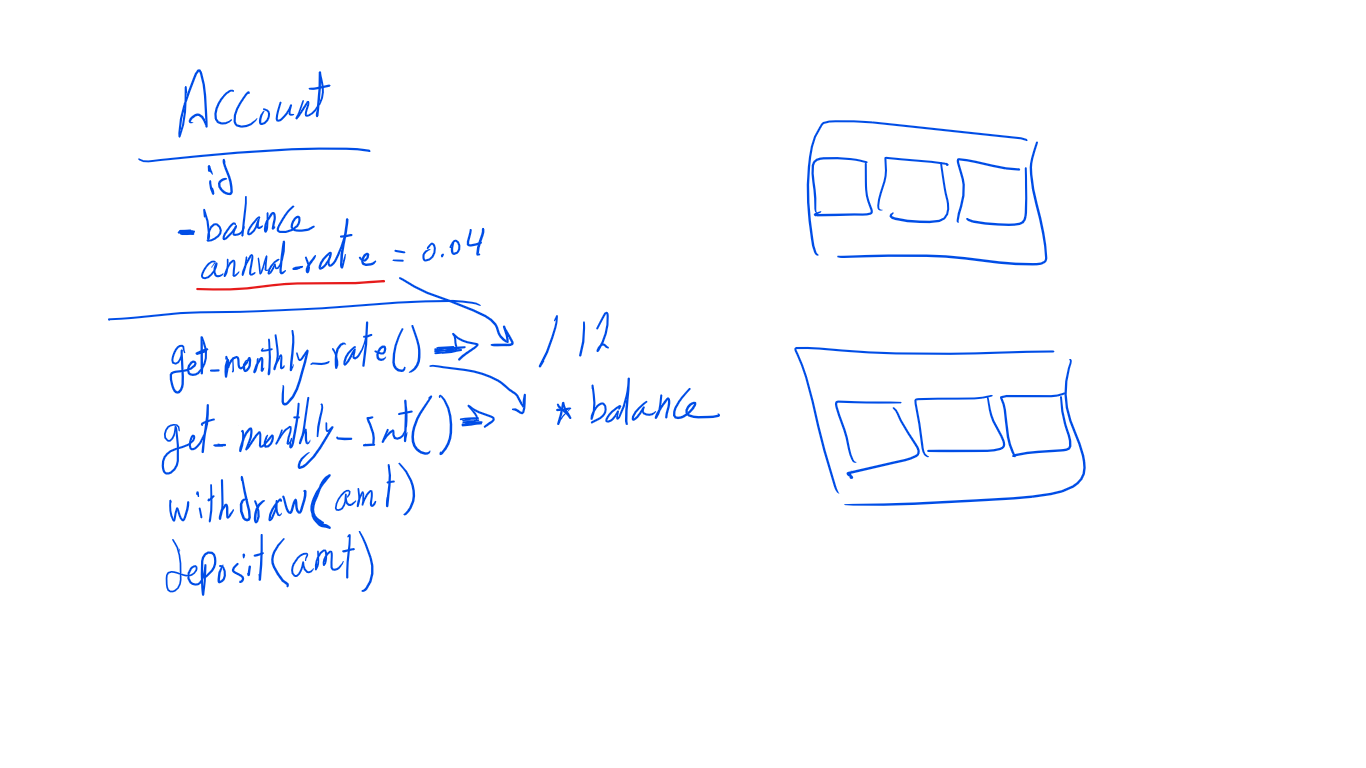 Account
id
- balance
annual_rate = 0.04
get_monthly_rate() → / 12
get_monthly_Int() → * balance
withdraw(amt)
deposit(amt)